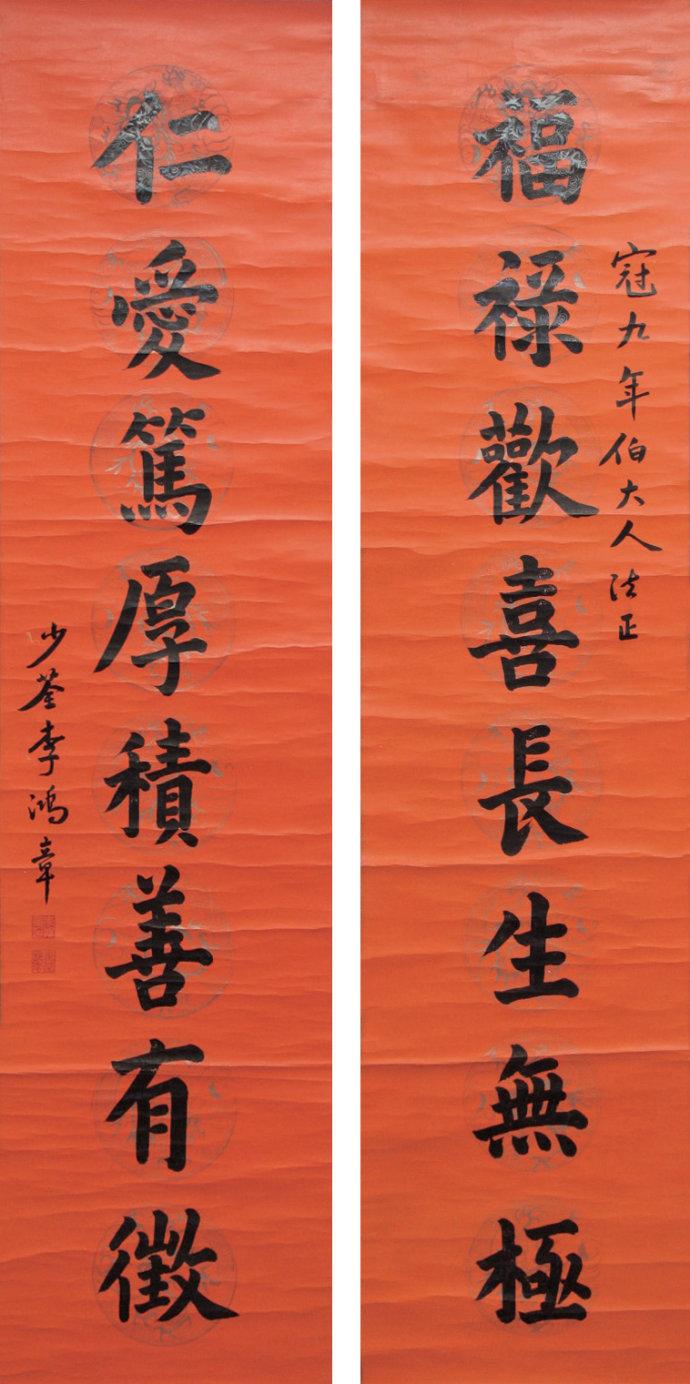 福祿歡喜長生無極
冠九年伯大人法正
仁愛篤厚積善有徵
少荃李鴻章